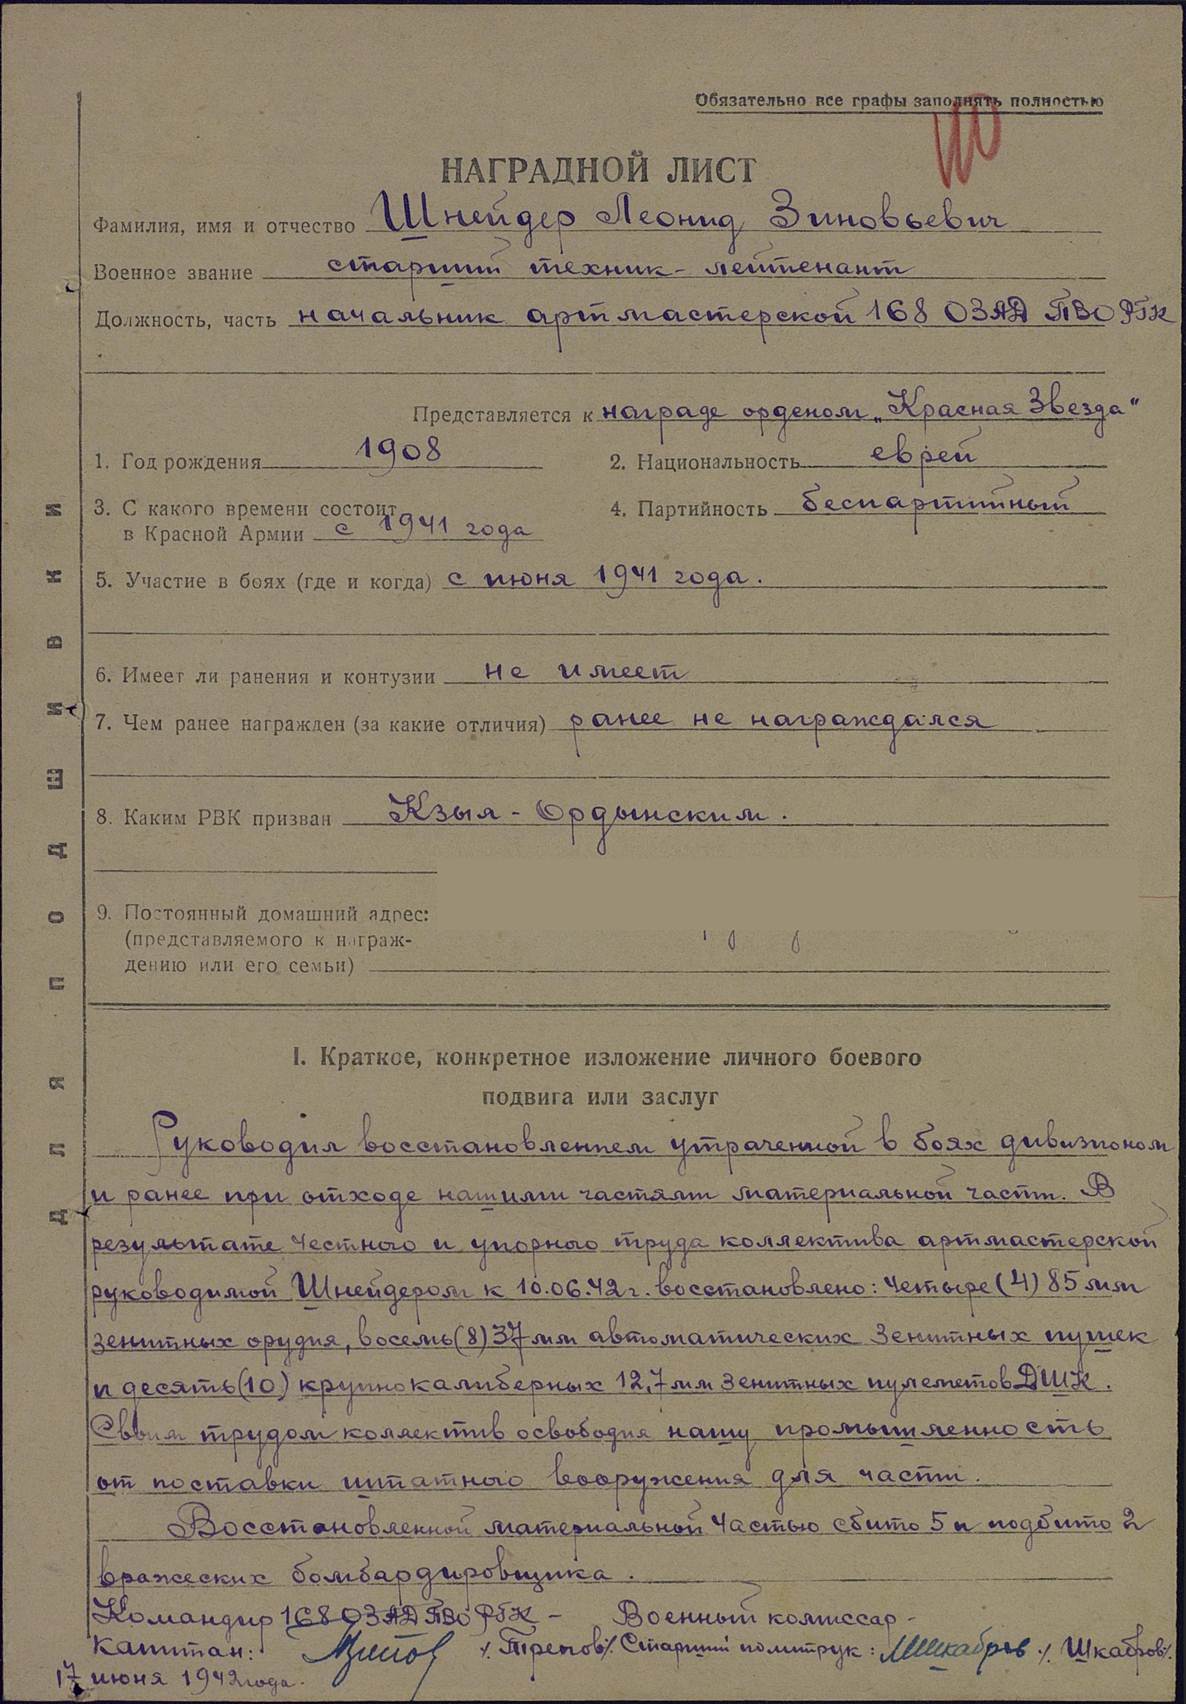 Обязательно все графы заполнять полностью
НАГРАДНОЙ ЛИСТ
Фамилия, имя и отчество Шнейдер Леонид Зиновьевич
Военное звание старший техник-лейтенант
Должность, часть начальник артмастерской 168 ОЗАД ПВО РГК
Представляется к награде орденом „Красная Звезда"
1. Год рождения 1908 2. Национальность еврей
3. С какого времени состоит 4. Партийность беспартийный
в Красной Армии с 1941 года
5. Участие в боях (где и когда) с июня 1941 года.
6. Имеет ли ранения и контузии не имеет
7. Чем ранее награжден (за какие отличия) ранее не награждался
8. Каким РВК призван Кзыл-Ордынским.
9. Постоянный домашний адрес:
(представляемого к награж-
дению или его семьи)
ДЛЯ ПОДШИВКИ
I. Краткое, конкретное изложение личного боевого
подвига или заслуг
Руководил восстановлением утраченной в боях дивизионом
и ранее при отходе нашими частями материальной части. В
результате честного и упорного труда коллектива артмастерской
руководимой Шнейдером к 10.06.42г. восстановлено: четыре (4) 85 мм
зенитных орудия, восемь (8) 37 мм автоматических зенитных пушек
и десять (10) крупнокалиберных 12,7 мм зенитных пулеметов ДШК.
Своим трудом коллектив освободил нашу промышленность
от поставки штатного вооружения для части.
Восстановленной материальной частью сбито 5 и подбито 2
вражеских бомбардировщика.
Командир 168 ОЗАД ПВО РГК – Военный комиссар –
капитан: /. Трепов/. Старший политрук: /. Шкабров/.
17 июня 1942 года.